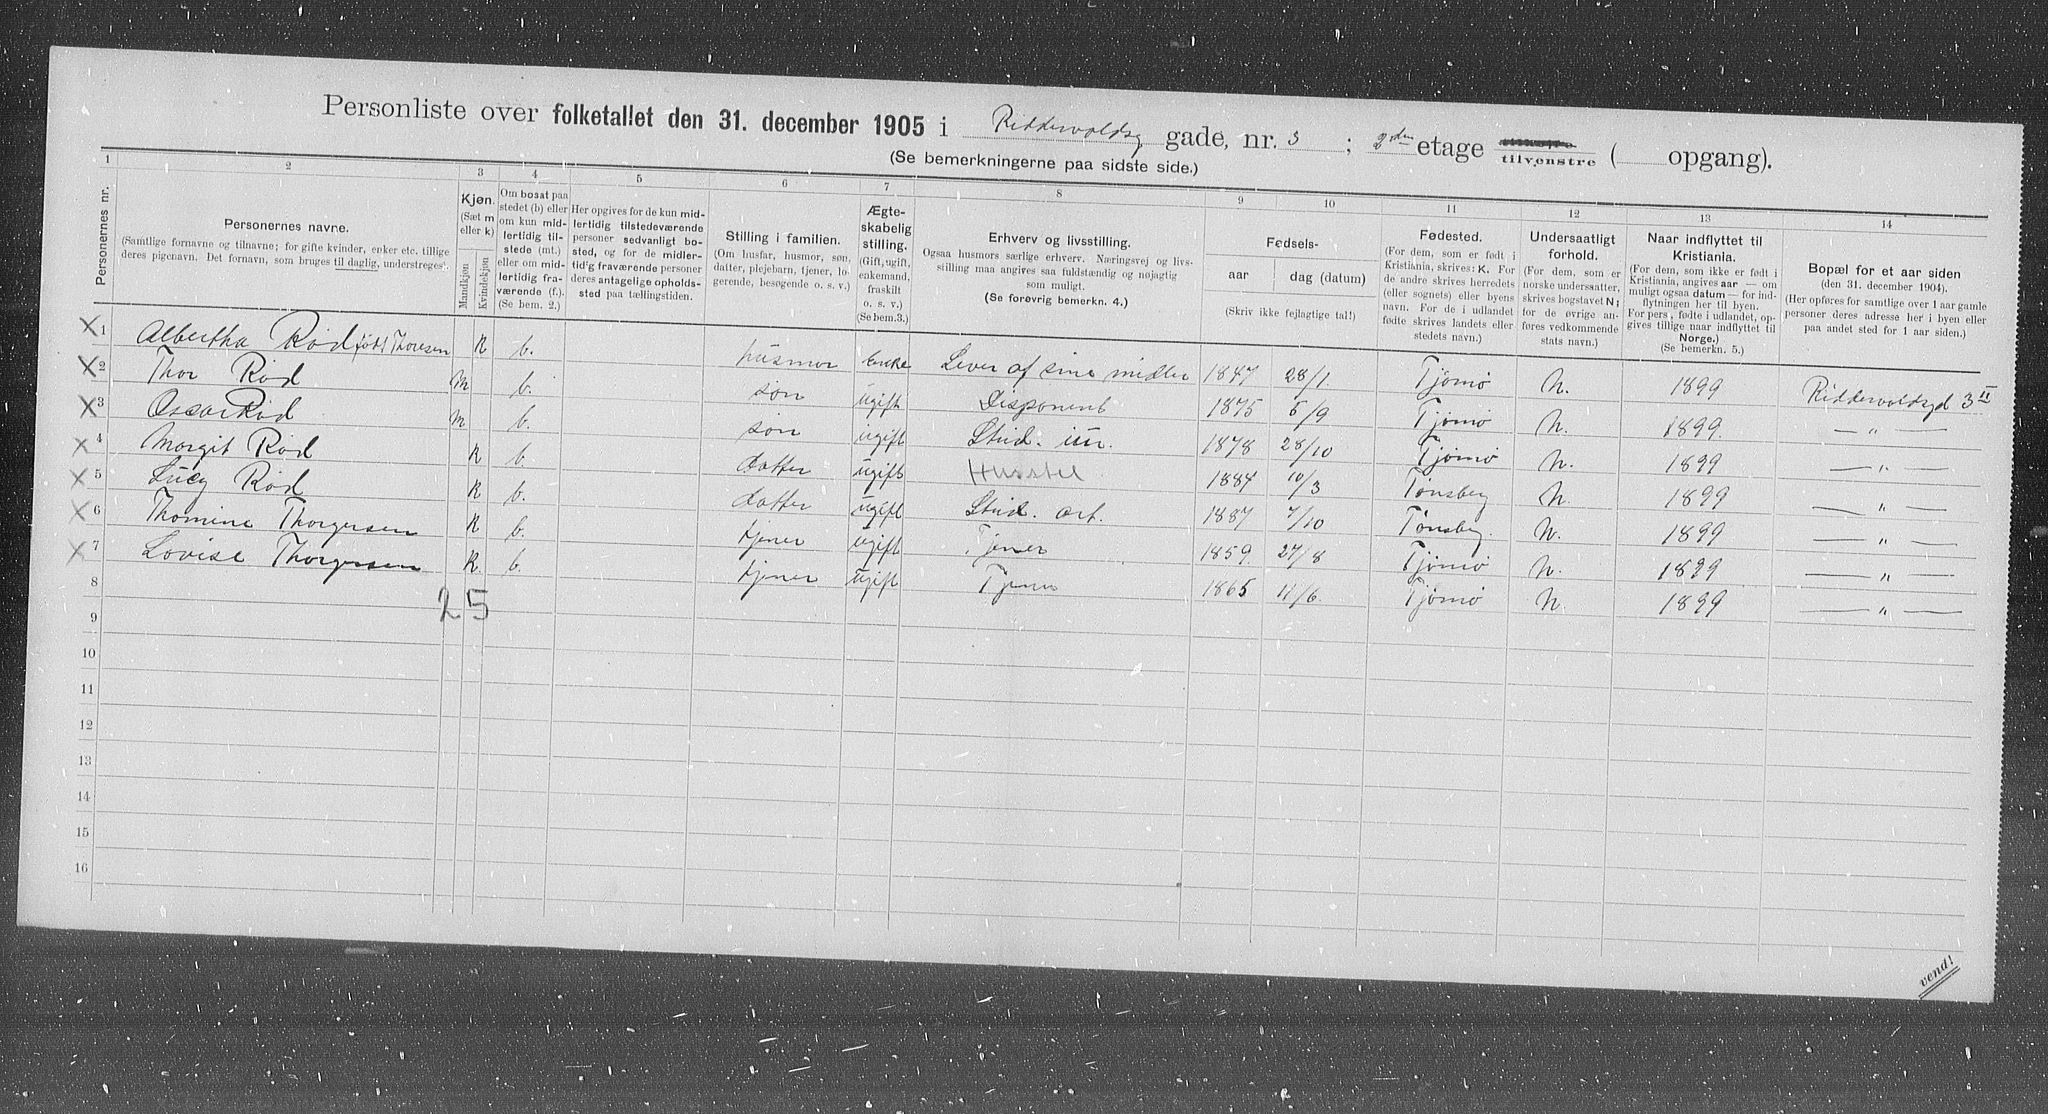 Personliste over folketallet den 31. december 1905 i Riddervoldsg gade, nr. 3 ; 2den etage tilvenstre ( opgang).
(Se bemerkningerne paa sidste side.)
1 2 3 4 5 6 7 8 9 10 11 12 13 14
Personernes nr.
Personernes navne.
(Samtlige fornavne og tilnavne; for gifte kvinder, enker etc. tillige
deres pigenavn. Det fornavn, som bruges til daglig, understreges).
Kjøn.
(Sæt m
eller k)
Mandkjøn
Kvindekjøn
Om bosat paa
stedet (b) eller
om kun mid-
lertidig til-
stede (mt.)
eller om mid-
lertidig fra-
værende (f.).
(Se bem. 2.)
Her opgives for de kun mid-
lertidig tilstedeværende
personer sedvanligt bo-
sted, og for de midler-
tid'g fraværende personer
deres antagelige opholds-
sted paa tællingstiden.
Stilling i familien.
(Om husfar, husmor, søn,
datter, plejebarn, tjener, lo-
gerende, besøgende o. s. v.)
Ægte-
skabelig
stilling.
(Gift, ugift,
enkemand,
fraskilt
o. s. v.)
(Se bem.3.)
Erhverv og livsstilling.
Ogsaa husmors særlige erhverv. Næringsvej og livs-
stilling maa angives saa fuldstændig og nøjagtig
som muligt.
(Se forøvrig bemerkn. 4.)
Fødsels-
aar
dag (datum)
(Skriv ikke fejlagtige tal!)
Fødested.
(For dem, som er født i
Kristiania, skrives: K. For
de andre skrives herredets
(eller sognets) eller byens
navn. For de i udlandet
fødte skrives landets eller
stedets navn.)
Undersaatligt
forhold.
(For dem, som er
norske undersaatter,
skrives bogstavet N;
for de øvrige an-
føres vedkommende
stats navn.)
Naar indflyttet til
Kristiania.
(For dem, som ikke er født i
Kristiania, angives aar — om
muligt ogsaa datum — for ind-
flytningen her til byen.
For pers, fødte i udlandet, op-
gives tillige naar indflyttet til
Norge.)
(Se bemerkn. 5.)
Bopæl for et aar siden
(den 31. december 1904).
(Her opføres for samtlige over 1 aar gamle
personer deres adresse her i byen eller
paa andet sted for 1 aar siden.)
X 1 Albertha Rød født Thoresen K b. husmor enke Lever af sine midler 1847 28/1 Tjømø N. 1899 Riddervoldsgd 3 II
X 2 Thor Rød m b. søn ugift Disponent 1875 5/9 Tjømø N. 1899. — „ —
X 3 Oscar Rød m b. søn ugift Stud. jur. 1878 28/10 Tjømø N. 1899 — „ —
X 4 Margit Rød K b. datter ugift Husstel 1884 10/3 Tønsberg N. 1899 — „ —
X 5 Lucy Rød K b. datter ugift Stud. art. 1887 7/10 Tønsberg. N. 1899 — „ —
X 6 Thomine Thorgersen K b. tjener ugift Tjener 1859. 27/8 Tjømø N. 1899 — „ —
X 7 Lovise Thorgersen K. b. tjener ugift Tjener 1865 11/6. Tjømø N. 1899 — „ —
8
2 5
9
10
11
12
13
14
15
16
vend!